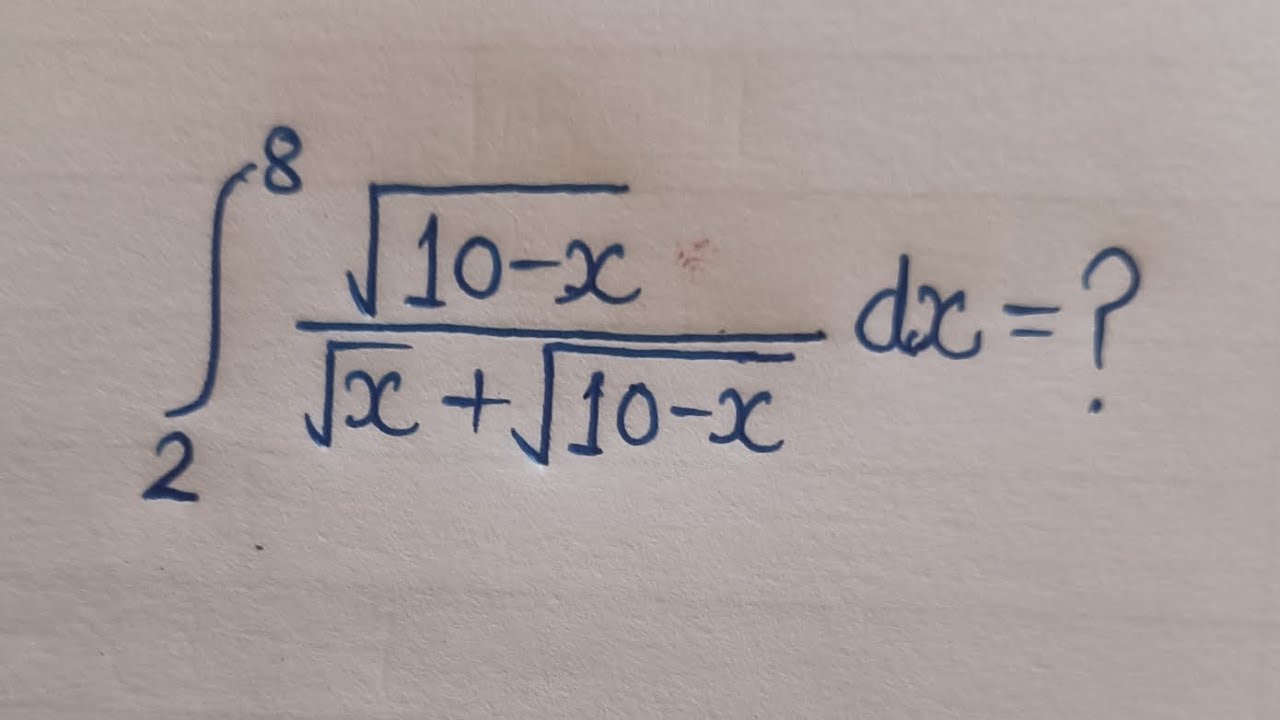 ∫₂⁸ √(10-x) / (√x + √(10-x)) dx = ?